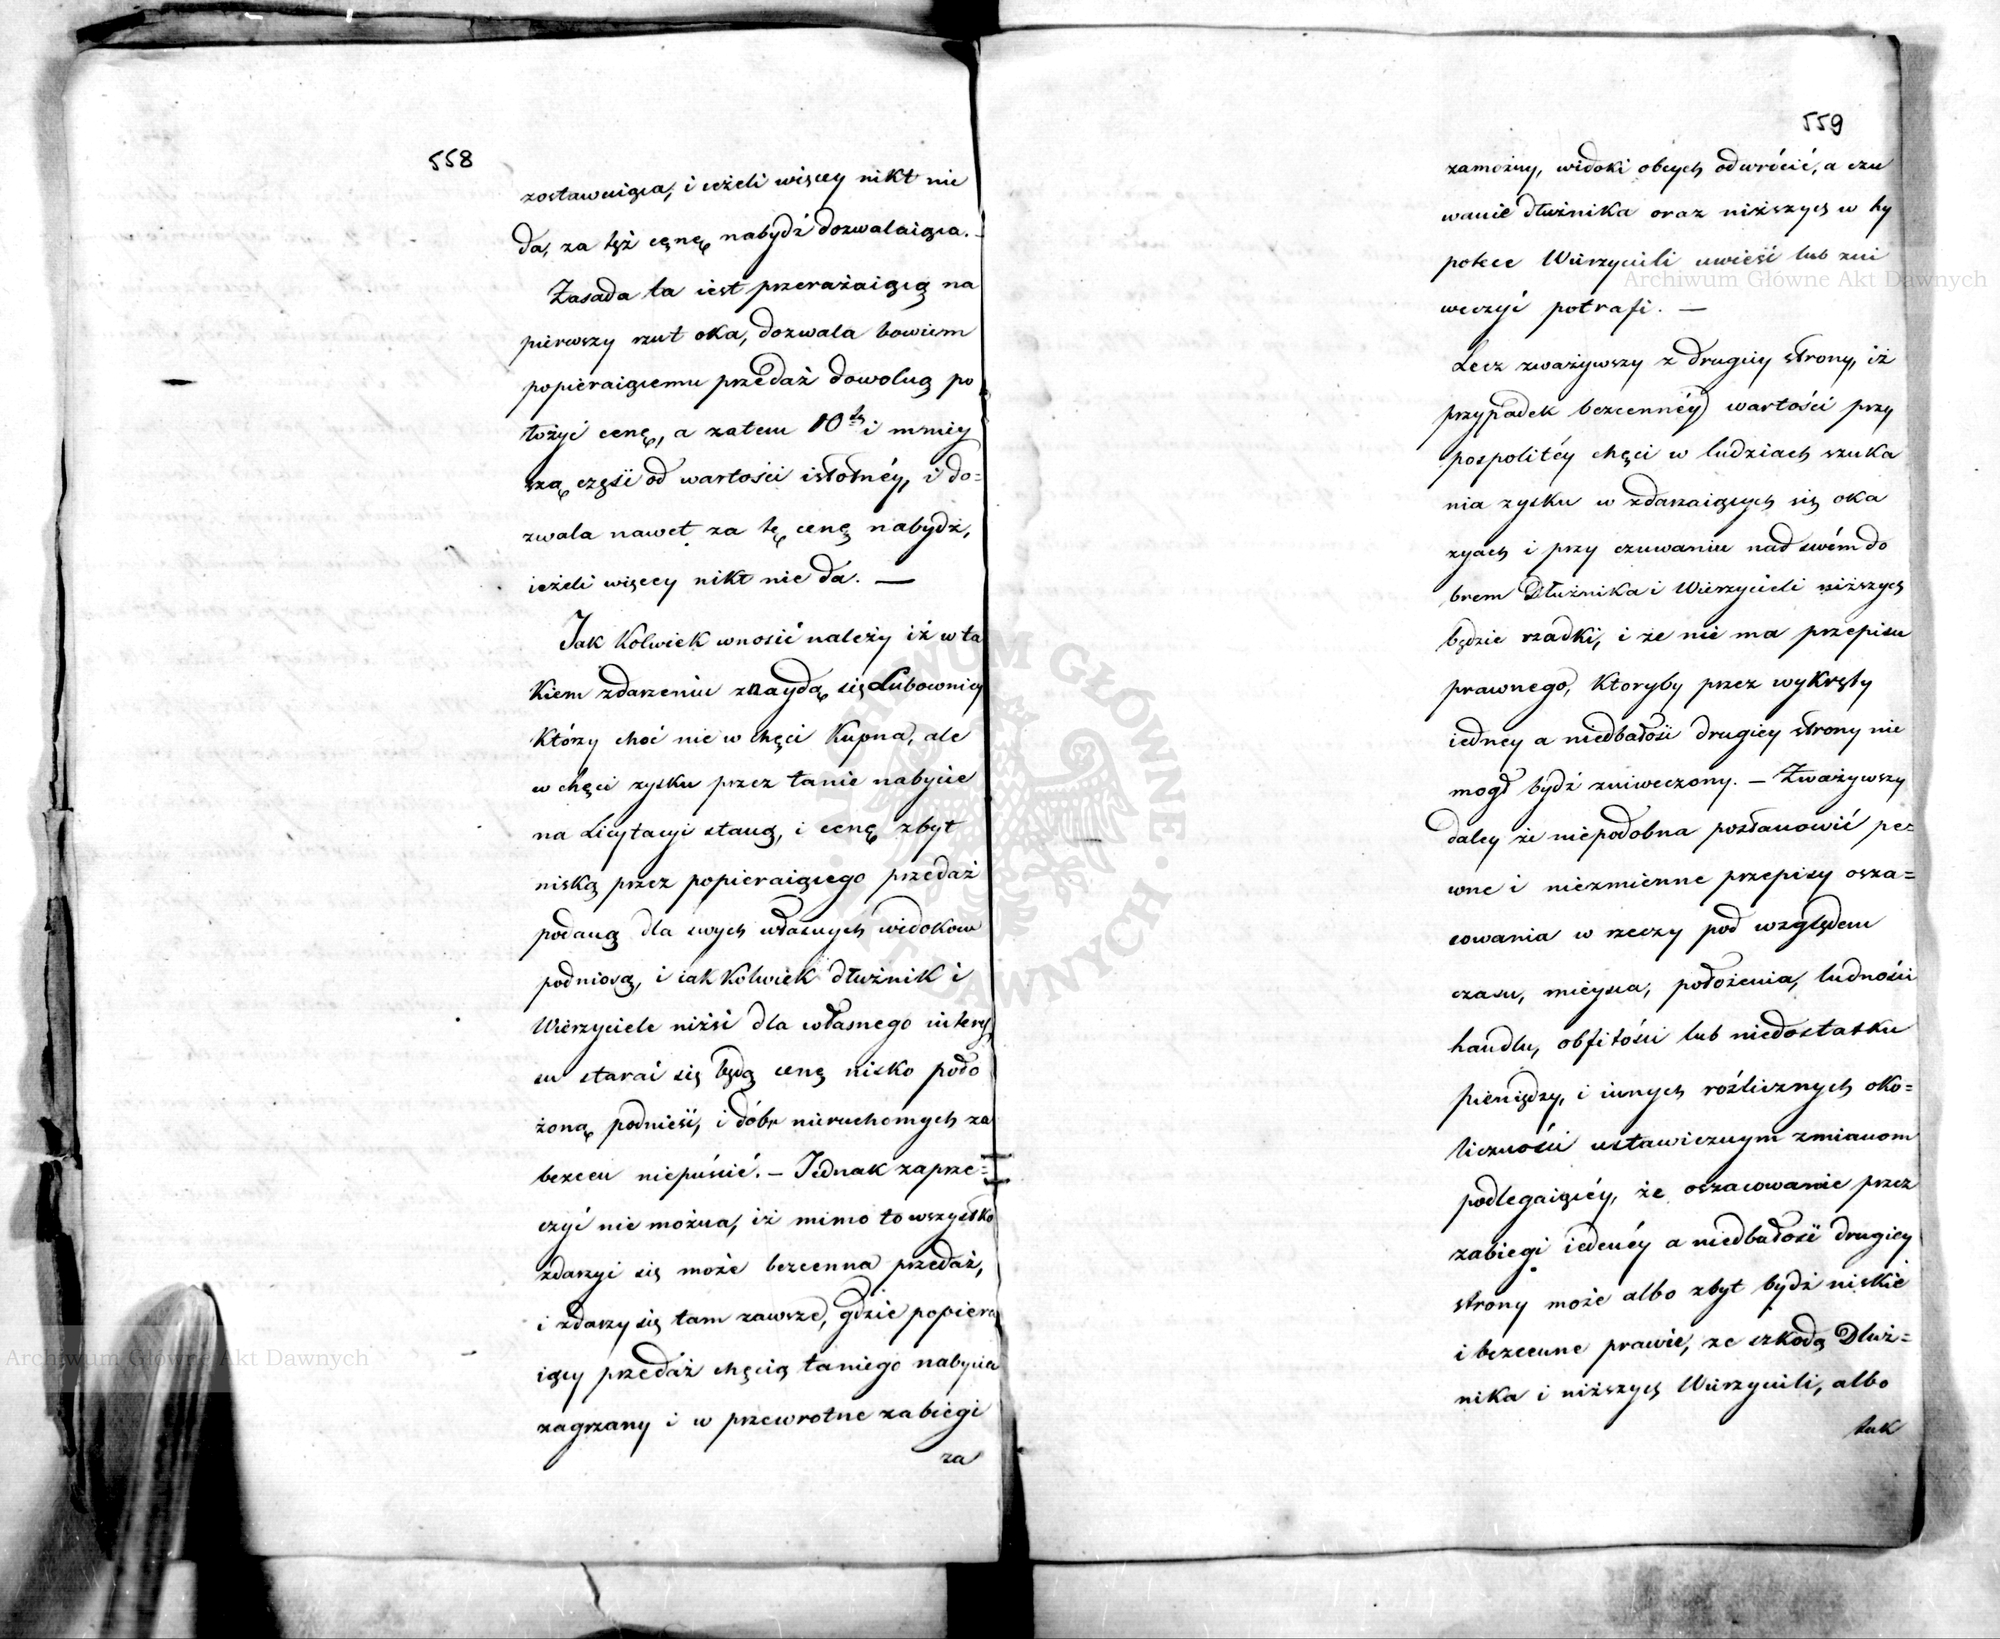 558
zostawuiąca, i ieżeli więcey nikt nie
da, za tęż cenę nabydź dozwalaiąca. –
Zasada ta iest przerażaiącą na
pierwszy rzut oka, dozwala bowiem
popieraiącemu przedaż dowolną po
łożyć cenę, a zatem 10tą i mniey
szą część od wartości istotnéy, i do=
zwala nawet za tę cenę nabydź,
ieżeli więcey nikt nie da. —
Jak kolwiek wnosić należy iż w ta
kiem zdarzeniu znaydą się Lubownicy
którzy choć nie w chęci kupna, ale
w chęci zysku przez tanie nabycie
na Licytacyi staną, i cenę zbyt
niską przez popieraiącego przedaż
podaną dla swych własnych widokow
podniosą, i iak kolwiek dłużnik i
Wierzyciele niżsi dla własnego interes
su starać się będą cenę nisko poło
żoną podnieść, i dóbr nieruchomych za
bezcen niepuścić. – Jednak zaprze=
czyć nie można, iż mimo to wszystko
zdarzyć się może bezcenna przedaż,
i zdarzy się tam zawsze, gdzie popiera
iący przedaż chęcią taniego nabycia
zagrzany i w przewrotne zabiegi
za
559
zamożny, widoki obcych odwrócić, a czu
wanie dłużnika oraz niższych w hy
potece Wierzycieli uwieść lub zni
weczyć potrafi. —
Lecz zważywszy z drugiey strony, iż
przypadek bezcennéy wartości przy
pospolitéy chęci w ludziach szuka
nia zysku w zdarzaiących się oka
zyach i przy czuwaniu nad swém do
brem Dłużnika i Wierzycieli niższych
będzie rzadki, i że nie ma przepisu
prawnego, ktoryby przez wykręty
iedney a niedbałość drugiey strony nie
mogł bydź zniweczony. – Zważywszy
daley że niepodobna postanowić pe=
wne i niezmienne przepisy osza=
cowania w rzeczy pod względem
czasu, mieysca, położenia, ludności
handlu, obfitości lub niedostatku
pieniędzy, i innych rozlicznych oko=
liczności ustawicznym zmianom
podlegaiącéy, że oszacowanie przez
zabiegi iednéy a niedbałość drugiey
strony może albo zbyt bydź niskie
i bezcenne prawie, ze szkodą Dłuż=
nika i niższych Wierzycieli, albo
tak
Archiwum Główne Akt Dawnych
Archiwum Główne Akt Dawnych
ARCHIWUM GŁÓWNE AKT DAWNYCH